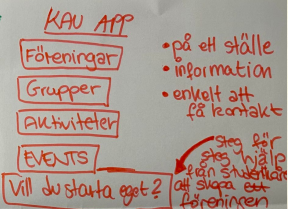 KAU APP
Föreningar
Grupper
Aktiviteter
EVENTS
Vill du starta eget?
• på ett ställe
• information
• enkelt att
få kontakt
steg för
steg hjälp
från studentkåren
att skapa
föreningen